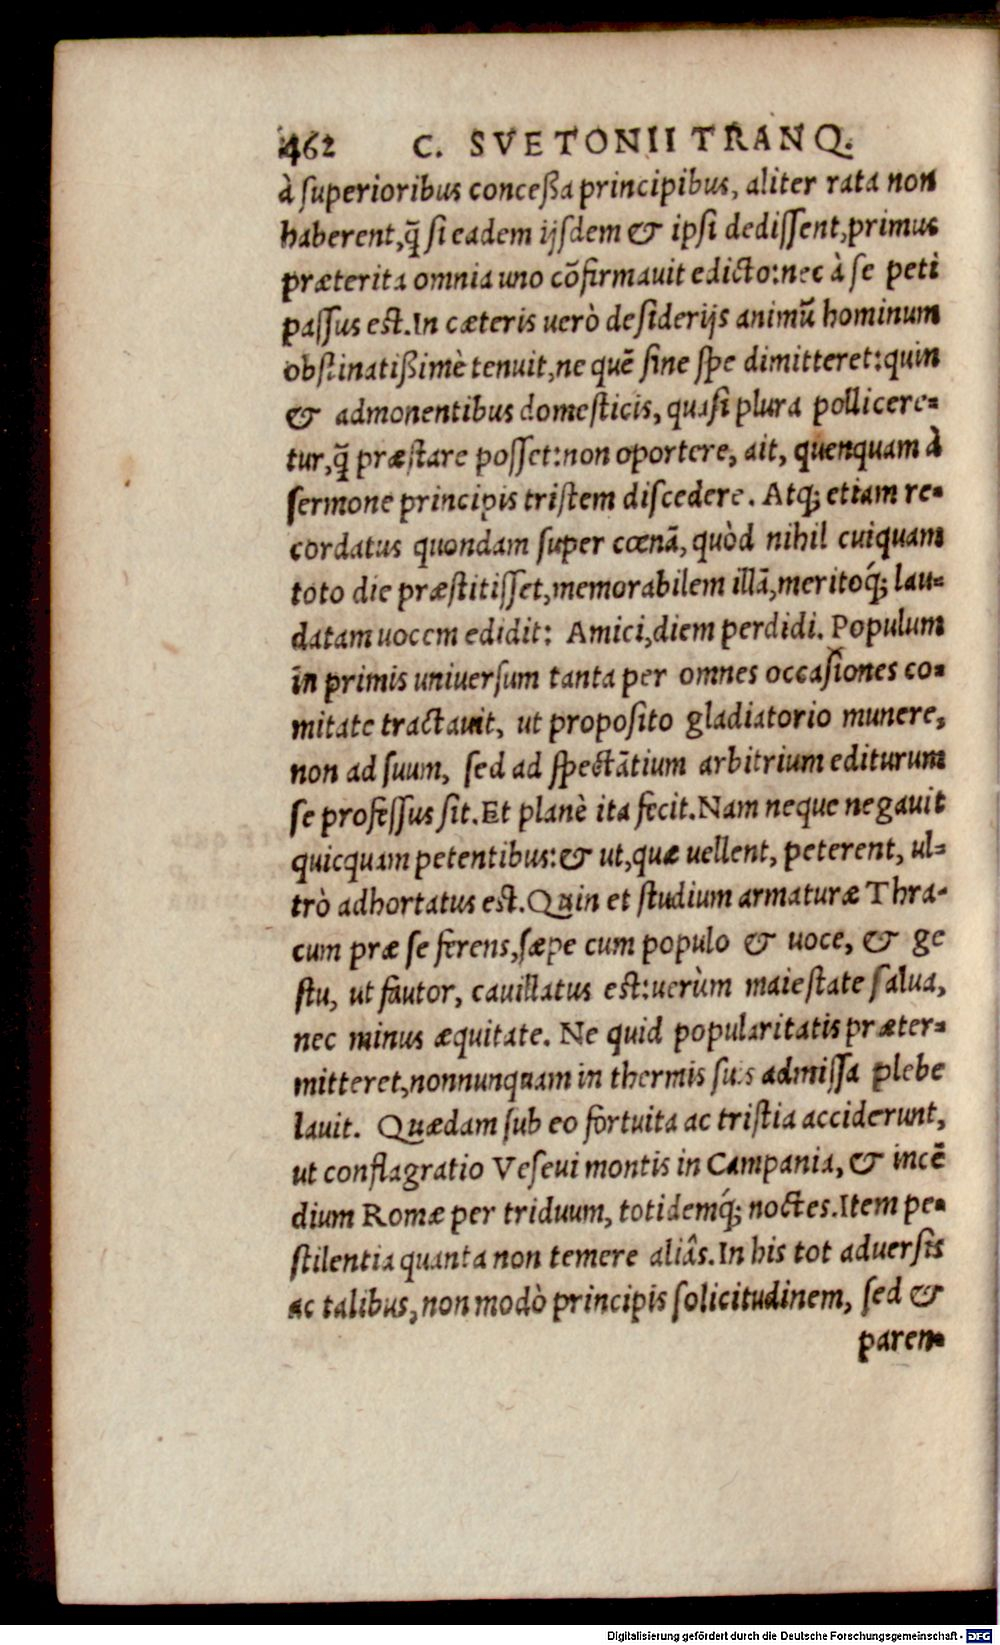 462 C. SVETONII TRANQ.
à superioribus conceßa principibus, aliter rata non
haberent, q̃ si eadem ijsdem & ipsi dedissent, primus
præterita omnia uno cõfirmauit edicto: nec à se peti
passus est. In cæteris uerò desiderijs animũ hominum
obstinatißimè tenuit, ne quẽ sine spe dimitteret: quin
& admonentibus domesticis, quasi plura pollicere=
tur, q̃ præstare posset: non oportere, ait, quenquam à
sermone principis tristem discedere. Atq; etiam re=
cordatus quondam super cœnã, quòd nihil cuiquam
toto die præstitisset, memorabilem illã, meritoq́; lau=
datam uocem edidit: Amici, diem perdidi. Populum
in primis uniuersum tanta per omnes occasiones co=
mitate tractauit, ut proposito gladiatorio munere,
non ad suum, sed ad spectãtium arbitrium editurum
se professus sit. Et planè ita fecit. Nam neque negauit
quicquam petentibus: & ut, quæ uellent, peterent, ul=
trò adhortatus est. Quin et studium armaturæ Thra-
cum præ se ferens, sæpe cum populo & uoce, & ge
stu, ut fautor, cauillatus est: uerùm maiestate salua,
nec minus æquitate. Ne quid popularitatis præter=
mitteret, nonnunquam in thermis suis admissa plebe
lauit. Quædam sub eo fortuita ac tristia acciderunt,
ut conflagratio Veseui montis in Campania, & incẽ
dium Romæ per triduum, totidemq́; noctes. Item pe=
stilentia quanta non temere aliâs. In his tot aduersis
ac talibus, non modò principis solicitudinem, sed &
paren=
Digitalisierung gefördert durch die Deutsche Forschungsgemeinschaft - DFG